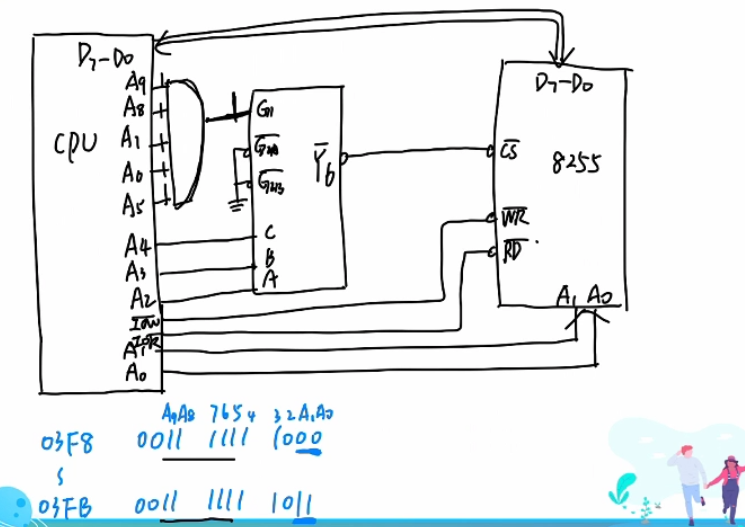 D7-D0
A9
A8
A1
A0
A5
CPU
A4
A3
A2
IOW
IOR
A1
A0
G1
G2A
G2B
Y6
C
B
A
D7-D0
CS
8255
WR
RD
A1 A0
A9A8 7654 32A1A0
03F8 0011 1111 1000
03FB 0011 1111 1011